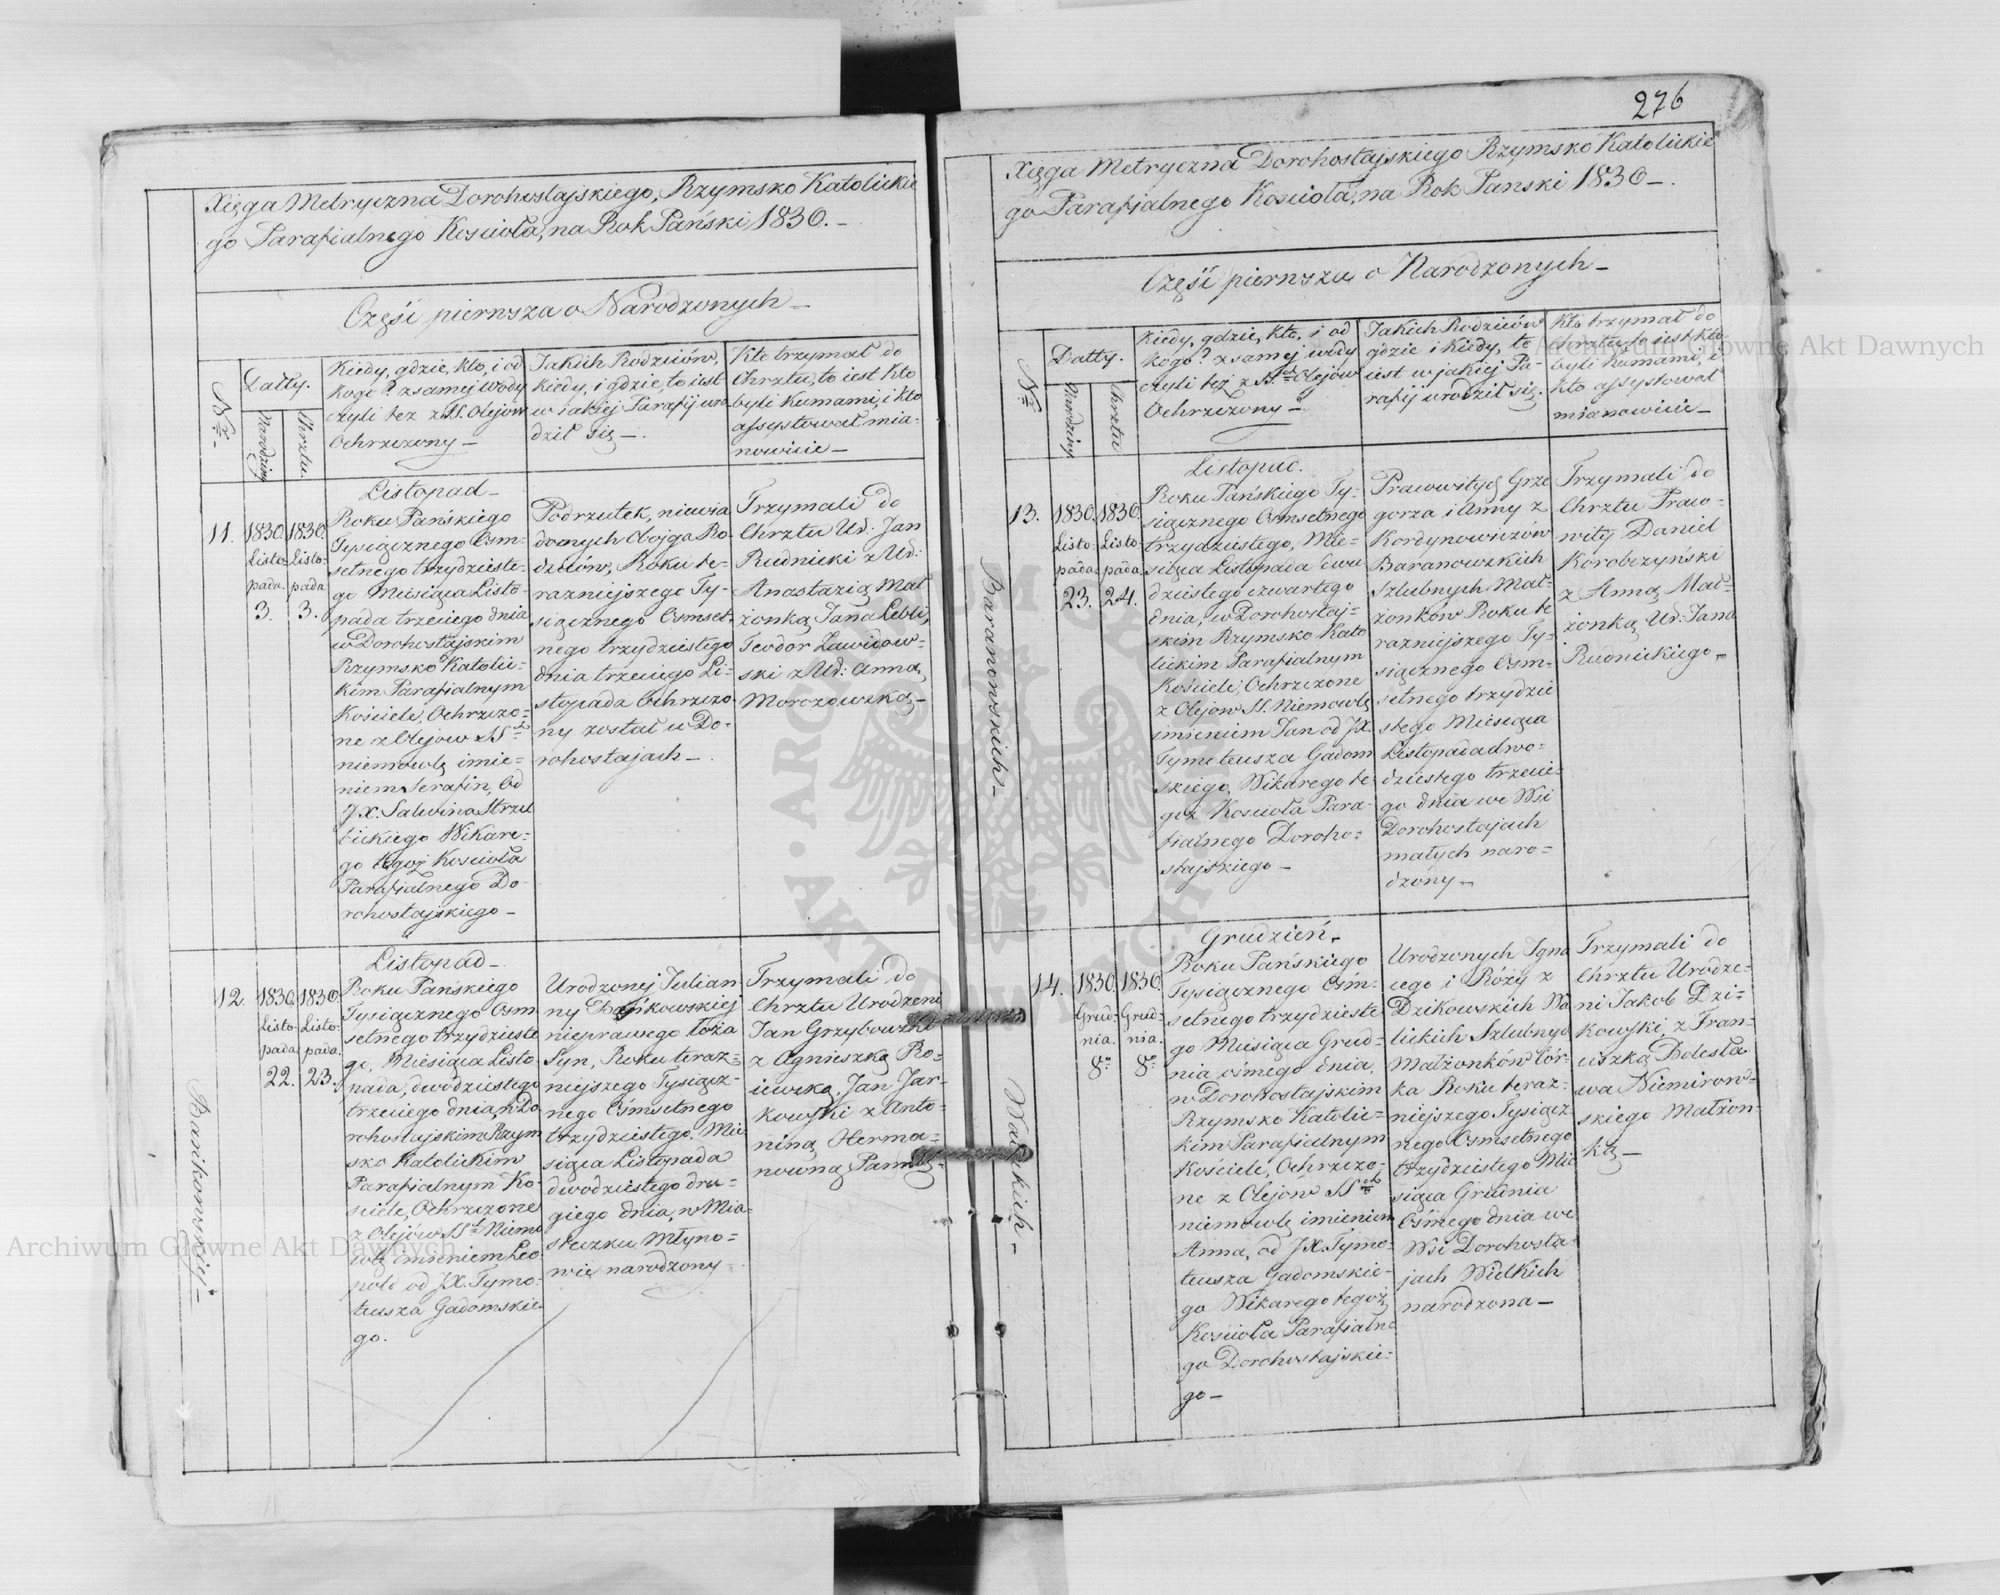 276
Xięga Metryczna Dorohostajskiego, Rzymsko Katolickie
go Parafialnego Kościoła, na Rok Pański 1830. –
Część pierwsza o Narodzonych –
Nro
Datty.
Narodziny
Chrztu.
Kiedy, gdzie, kto, i od
kogo? z samej wody
czyli też z SS. Olejów
Ochrzczony –
Jakich Rodziców,
kiedy, i gdzie, to iest
w iakiej Parafij uro
dził się –.
Kto trzymał do
Chrztu, to iest kto
byli Kumami, i kto
assystował mia-
nowicie –
11.
1830.
Listo-
pada.
3.
1830.
Listo-
pada
3.
Listopad –
Roku Pańskiego
Tysiącznego Osm-
setnego trzydzieste-
go Miesiąca Listo-
pada trzeciego dnia
w Dorohostajskim
Rzymsko Katolic=
kim Parafialnym
Kościele, Ochrzczo=
ne z Olejow SS
niemowlę imie=
niem Serafin, Od
J.X. Salwina Strzel
bickiego Wikare=
go tegoż Kościoła
Parafialnego Do-
rohostajskiego –
Podrzutek, niewia
domych Obojga Ro-
dziców, Roku te-
razniejszego Ty-
siącznego Osmset-
nego trzydziestego
dnia trzeciego Li-
stopada Ochrzczo
ny został w Do-
rohostajach –.
Trzymali do
Chrztu Ur. Jan
Rudnicki z Ur:
Anastazią Mał
żonką Jana
Teodor Zawidow=
ski z Ur: Anną
Morozowską –
12.
Bańkowskiej –
1830.
Listo-
pada
22.
1830.
Listo-
pada.
23.
Listopad –
Roku Pańskiego
Tysiącznego Osm
setnego trzydzieste
go, Miesiąca Listo-
pada, dwódziestego
trzeciego dnia w Do
rohostajskim Rzym
sko Katolickim
Parafialnym Ko-
ściele, Ochrzczone
z Olejów SS Niemo
wlę imieniem Leo-
pold od J.X. Tymo-
teusza Gadomskie
go.
Urodzonej Julian
ny Bańkowskiej
nieprawego łoża
Syn, Roku teraz=
niejszego Tysiącz-
nego Ośmsetnego
trzydziestego, Mie
siąca Listopada
dwodziestego dru=
giego dnia, w Mia-
steczku Młyno=
wie narodzony
Trzymali do
Chrztu Urodzeni
Jan Grzybowski
z Agnieszką Ro-
iewską, Jan Jar-
kowski z Anto-
niną Herma=
nowną Panną.
Xięga Metryczna Dorohostajskiego Rzymsko Katolickie
go Parafialnego Kościoła, na Rok Panski 1830 –.
Część pierwsza o Narodzonych –
Nro
Datty.
Narodziny
Chrztu
Kiedy, gdzie, kto, i od
kogo? z samej wody
czyli też z SS Olejów
Ochrzczony –
Jakich Rodziców
gdzie i Kiedy, to
iest w jakiej Pa-
rafij urodził się.
Kto trzymał do
chrztu, to iest kto
byli Kumami, i
kto assystował
mianowicie –
13.
Baranowskich –
1830.
Listo
pada.
23.
1830.
Listo-
pada.
24.
Listopad.
Roku Pańskiego Ty-
siącznego Osmsetnego
trzydziestego, Mie-
siąca Listopada dwu
dziestego czwartego
dnia, w Dorohostaj=
skim Rzymsko Kato
lickim Parafialnym
Kościele, Ochrzczone
z Olejow SS. Niemowlę
imieniem Jan od J.X.
Tymeteusza Gadom
skiego, Wikarego te-
goż Kościoła Para-
fialnego Doroho=
stajskiego –
Prawowitych Grze
gorza i Anny z
Kordynowiczów
Baranowskich
Szlubnych Mał-
żonków Roku te
razniejszego Ty-
siącznego Osm-
setnego trzydzie
stego Miesiąca
Listopada dwo-
dziestego trzecie-
go dnia we Wsi
Dorohostajach
małych naro=
dzony –
Trzymali do
Chrztu Prawo-
wity Daniel
Korobczyński
z Anną Mał-
żonką Ur: Jana
Rudnickiego –
14.
Walickich –
1830.
Grud-
nia.
8o
1830.
Grud-
nia.
8o
Grudzień.
Roku Pańskiego
Tysiącznego Ośm-
setnego trzydzieste
go Miesiąca Grud-
nia, osmego dnia,
w Dorohostajskim
Rzymsko Katolic=
kim Parafialnym
Kościele, Ochrzczo-
ne z Olejów SS
niemowlę imieniem
Anna, od J.X. Tymo-
teusza Gadomskie-
go Wikarego tegoż
Kościoła Parafialne
go Dorohostajskie-
go –
Urodzonych Igna
cego i Róży z
Dzikowskich Wa
lickich Szlubnych
Małżonków Cór-
ka Roku teraz-
niejszego Tysiącz
nego Osmsetnego
trzydziestego Mie
siąca Grudnia
Ośmego dnia we
Wsi Dorohosta-
jach Wielkich
narodzona –
Trzymali do
Chrztu Urodze-
ni Jakob Dzi=
kowski, z Fran-
ciszką Bolesła
wa Niemirow-
skiego Małżon-
ką –
Archiwum Główne Akt Dawnych
Archiwum Główne Akt Dawnych